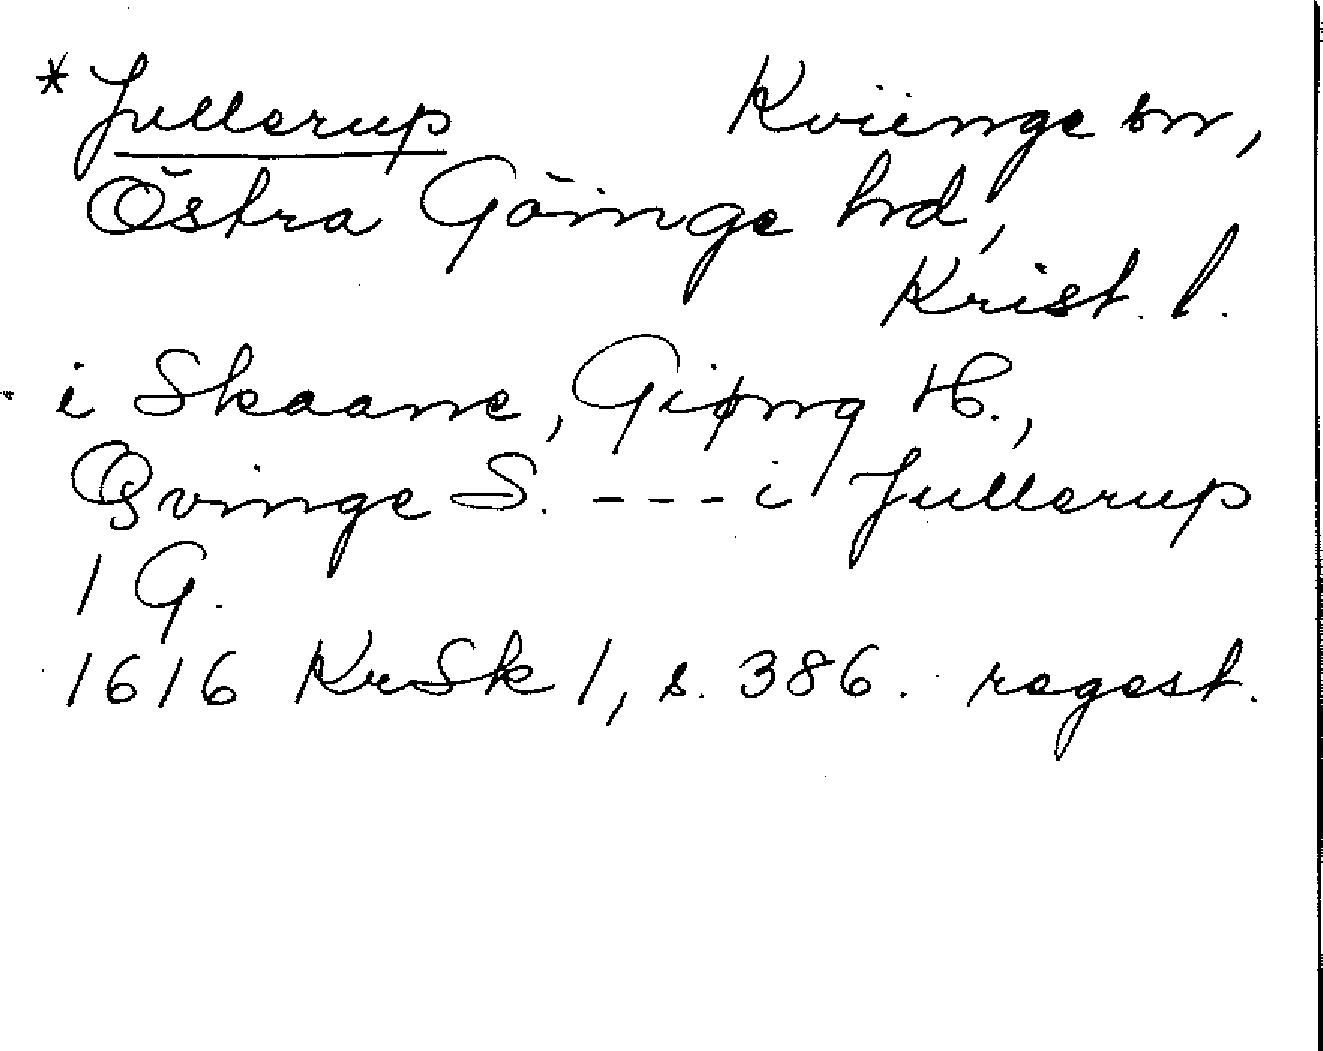 * Jullerup Kviinge sn,
Östra Göinge hd,
Krist. l.
i Skaane, Giøng H.,
Qvinge S. --- i Jullerup
1 G.
1616 KrSk 1, s. 386. regest.